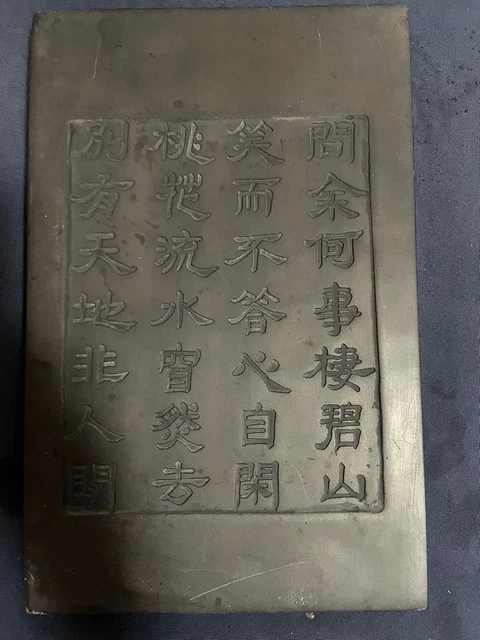 問余何事棲碧山
笑而不答心自閑
桃花流水窅然去
別有天地非人間